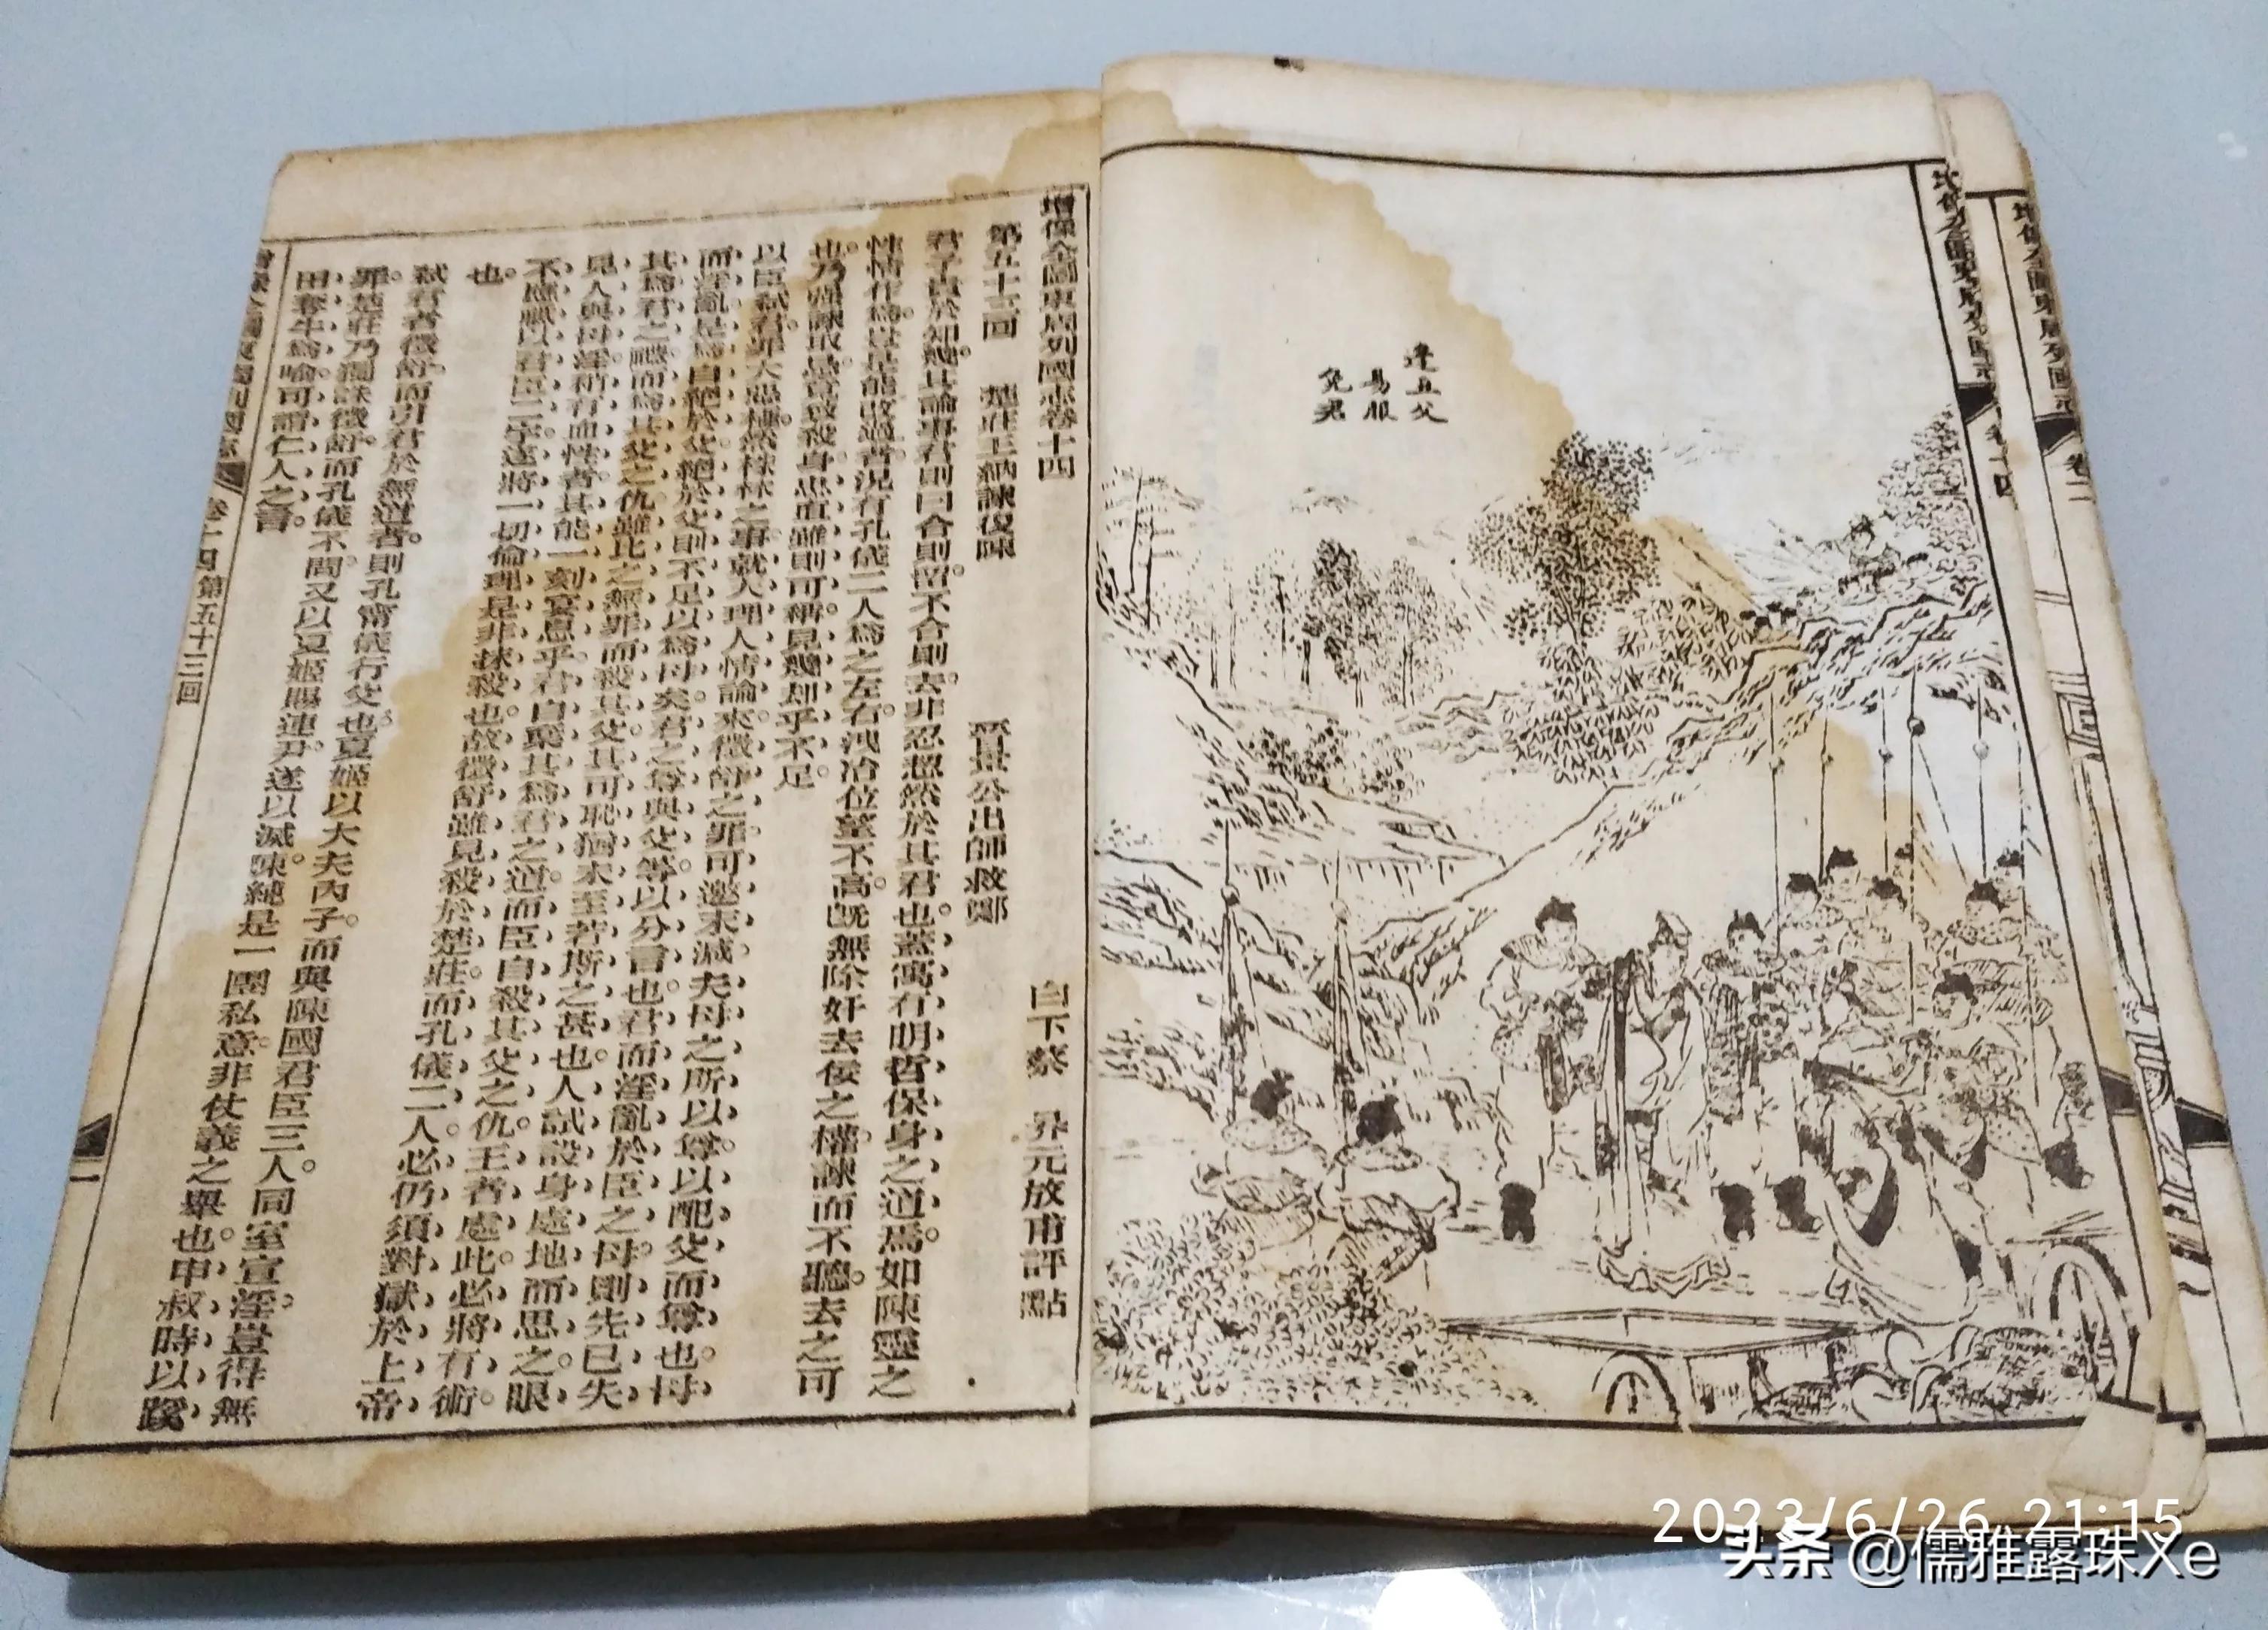 增像全圖東周列國志 卷二
增像全圖東周列國志 卷十四
逢丑父
易服
免君
增像全圖東周列國志卷十四 白下蔡 奡元放甫評點
第五十三回 楚莊王納諫復陳 晉景公出師救鄭
君子貴於知幾。其論事君則曰合則留。不合則去。非忍恝然於其君也。蓋寓有明哲保身之道焉。如陳靈之
性情作爲。豈是能改過者。況有孔儀二人爲之左右。洩冶位望不高。旣無除奸去佞之權。諫而不聽。去之可
也。乃强諫取忌。竟致殺身。忠直雖則可稱。見幾却乎不足。
以臣弒君。罪大惡極。然株林之事。就天理人情論來。徵舒之罪。可邀末減。夫母之所以尊。以配父而尊也。母
而淫亂。是爲自絕於父。絕於父。則不足以爲母矣。君之尊與父等。以分言也。君而淫亂於臣之母。則先已失
其爲君之禮。而爲其父之仇。雖比之無罪而殺其父。其可恥猶未至若斯之甚也。人試設身處地而思之。眼
見人與母淫。稍有血性者。其能一刻宴息乎。君自棄其爲君之道。而臣自殺其父之仇。王者處此。必將有術。
不應賦以君臣二字。遂將一切倫理是非抹殺也。故徵舒雖見殺於楚莊。而孔儀二人。必仍須對獄於上帝
也。
弒君者徵舒。而引君於無道者。則孔甯儀行父也。夏姬以大夫內子。而與陳國君臣三人。同室宣淫。豈得無
罪。楚莊乃獨誅徵舒。而孔儀不問。又以夏姬賜連尹。遂以滅陳。純是一團私意。非仗義之舉也。申叔時以蹊
田奪牛爲喻。可謂仁人之言。
增像全圖東周列國志 卷十四 第五十三回 一
2023/6/26 21:15
头条 @儒雅露珠Xe